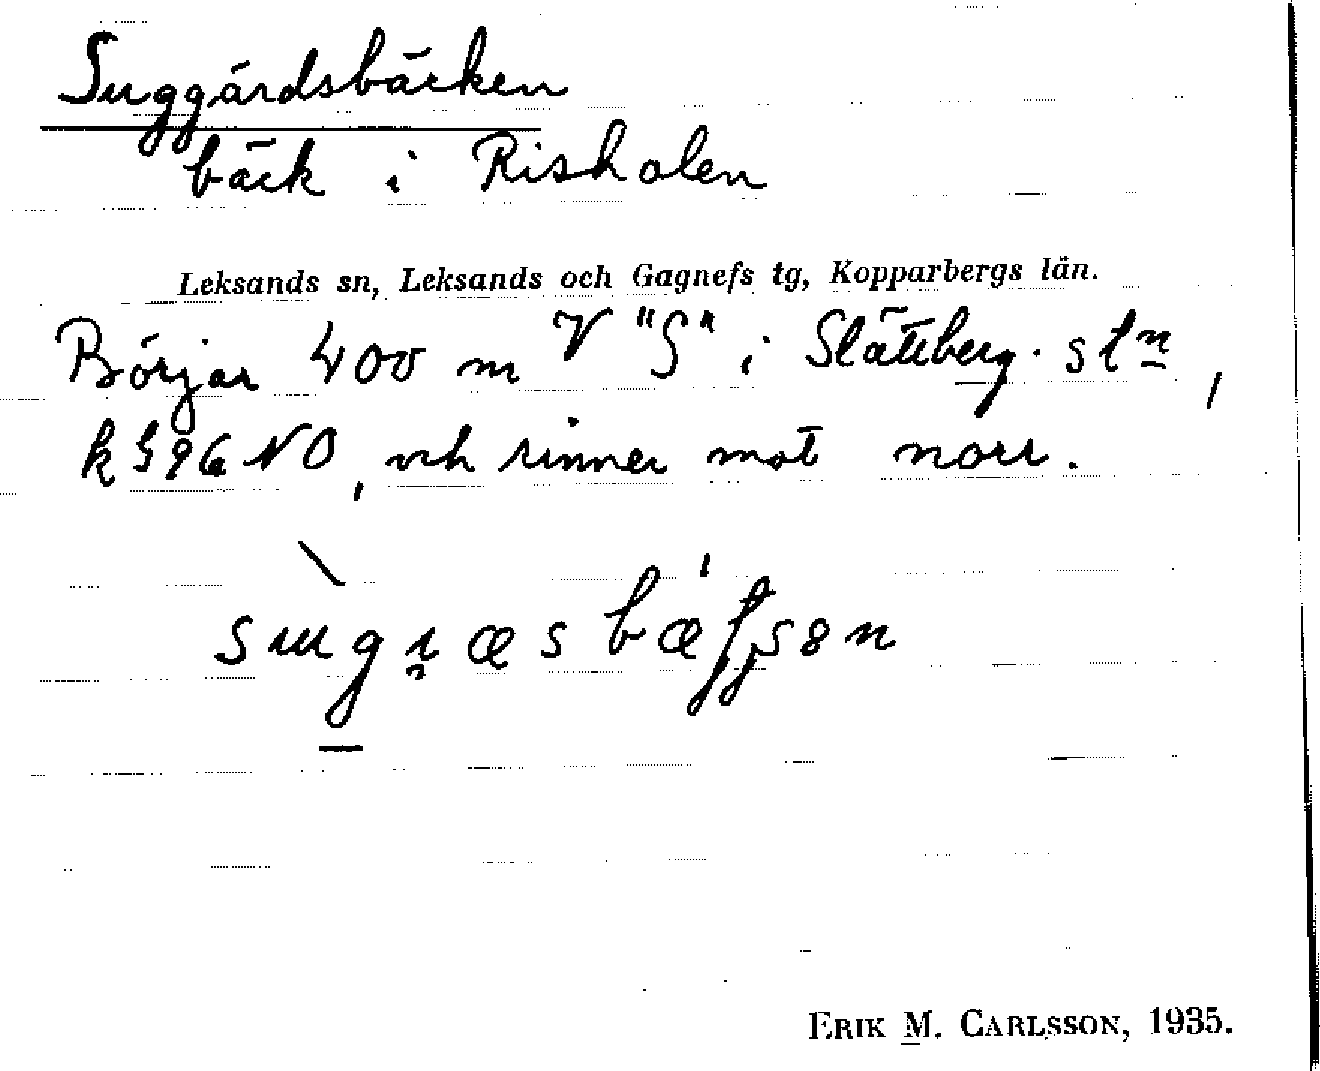 Suggärdsbäcken
bäck i Risholen
Leksands sn, Leksands och Gagnefs tg, Kopparbergs län.
Börjar 400 m V "S" i Slättberg. stn,
k 596 NO, och rinner mot norr.
ERIK M. CARLSSON, 1935.